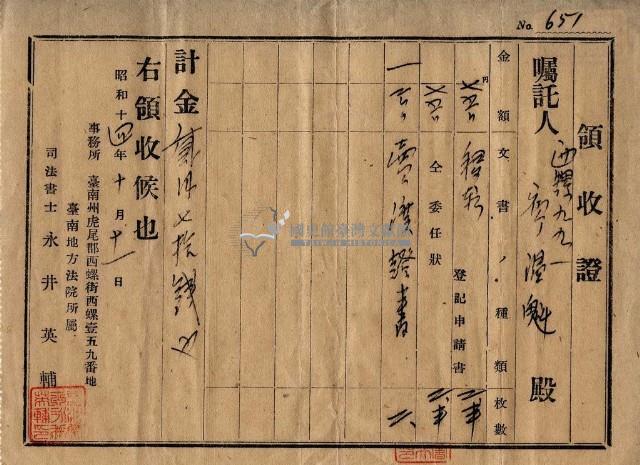 No. 651
領收證
囑託人 西螺九九一 廖溫魁 殿
金額 文書ノ種類 枚數
圓
登記申請書
仝 委任狀
賣渡證書
計金貳円七拾錢也
右領收候也
昭和十四年十月十一日
事務所 臺南州虎尾郡西螺街西螺壹五九番地
臺南地方法院所屬
司法書士 永井英輔
國史館臺灣文獻館
TAIWAN HISTORICA